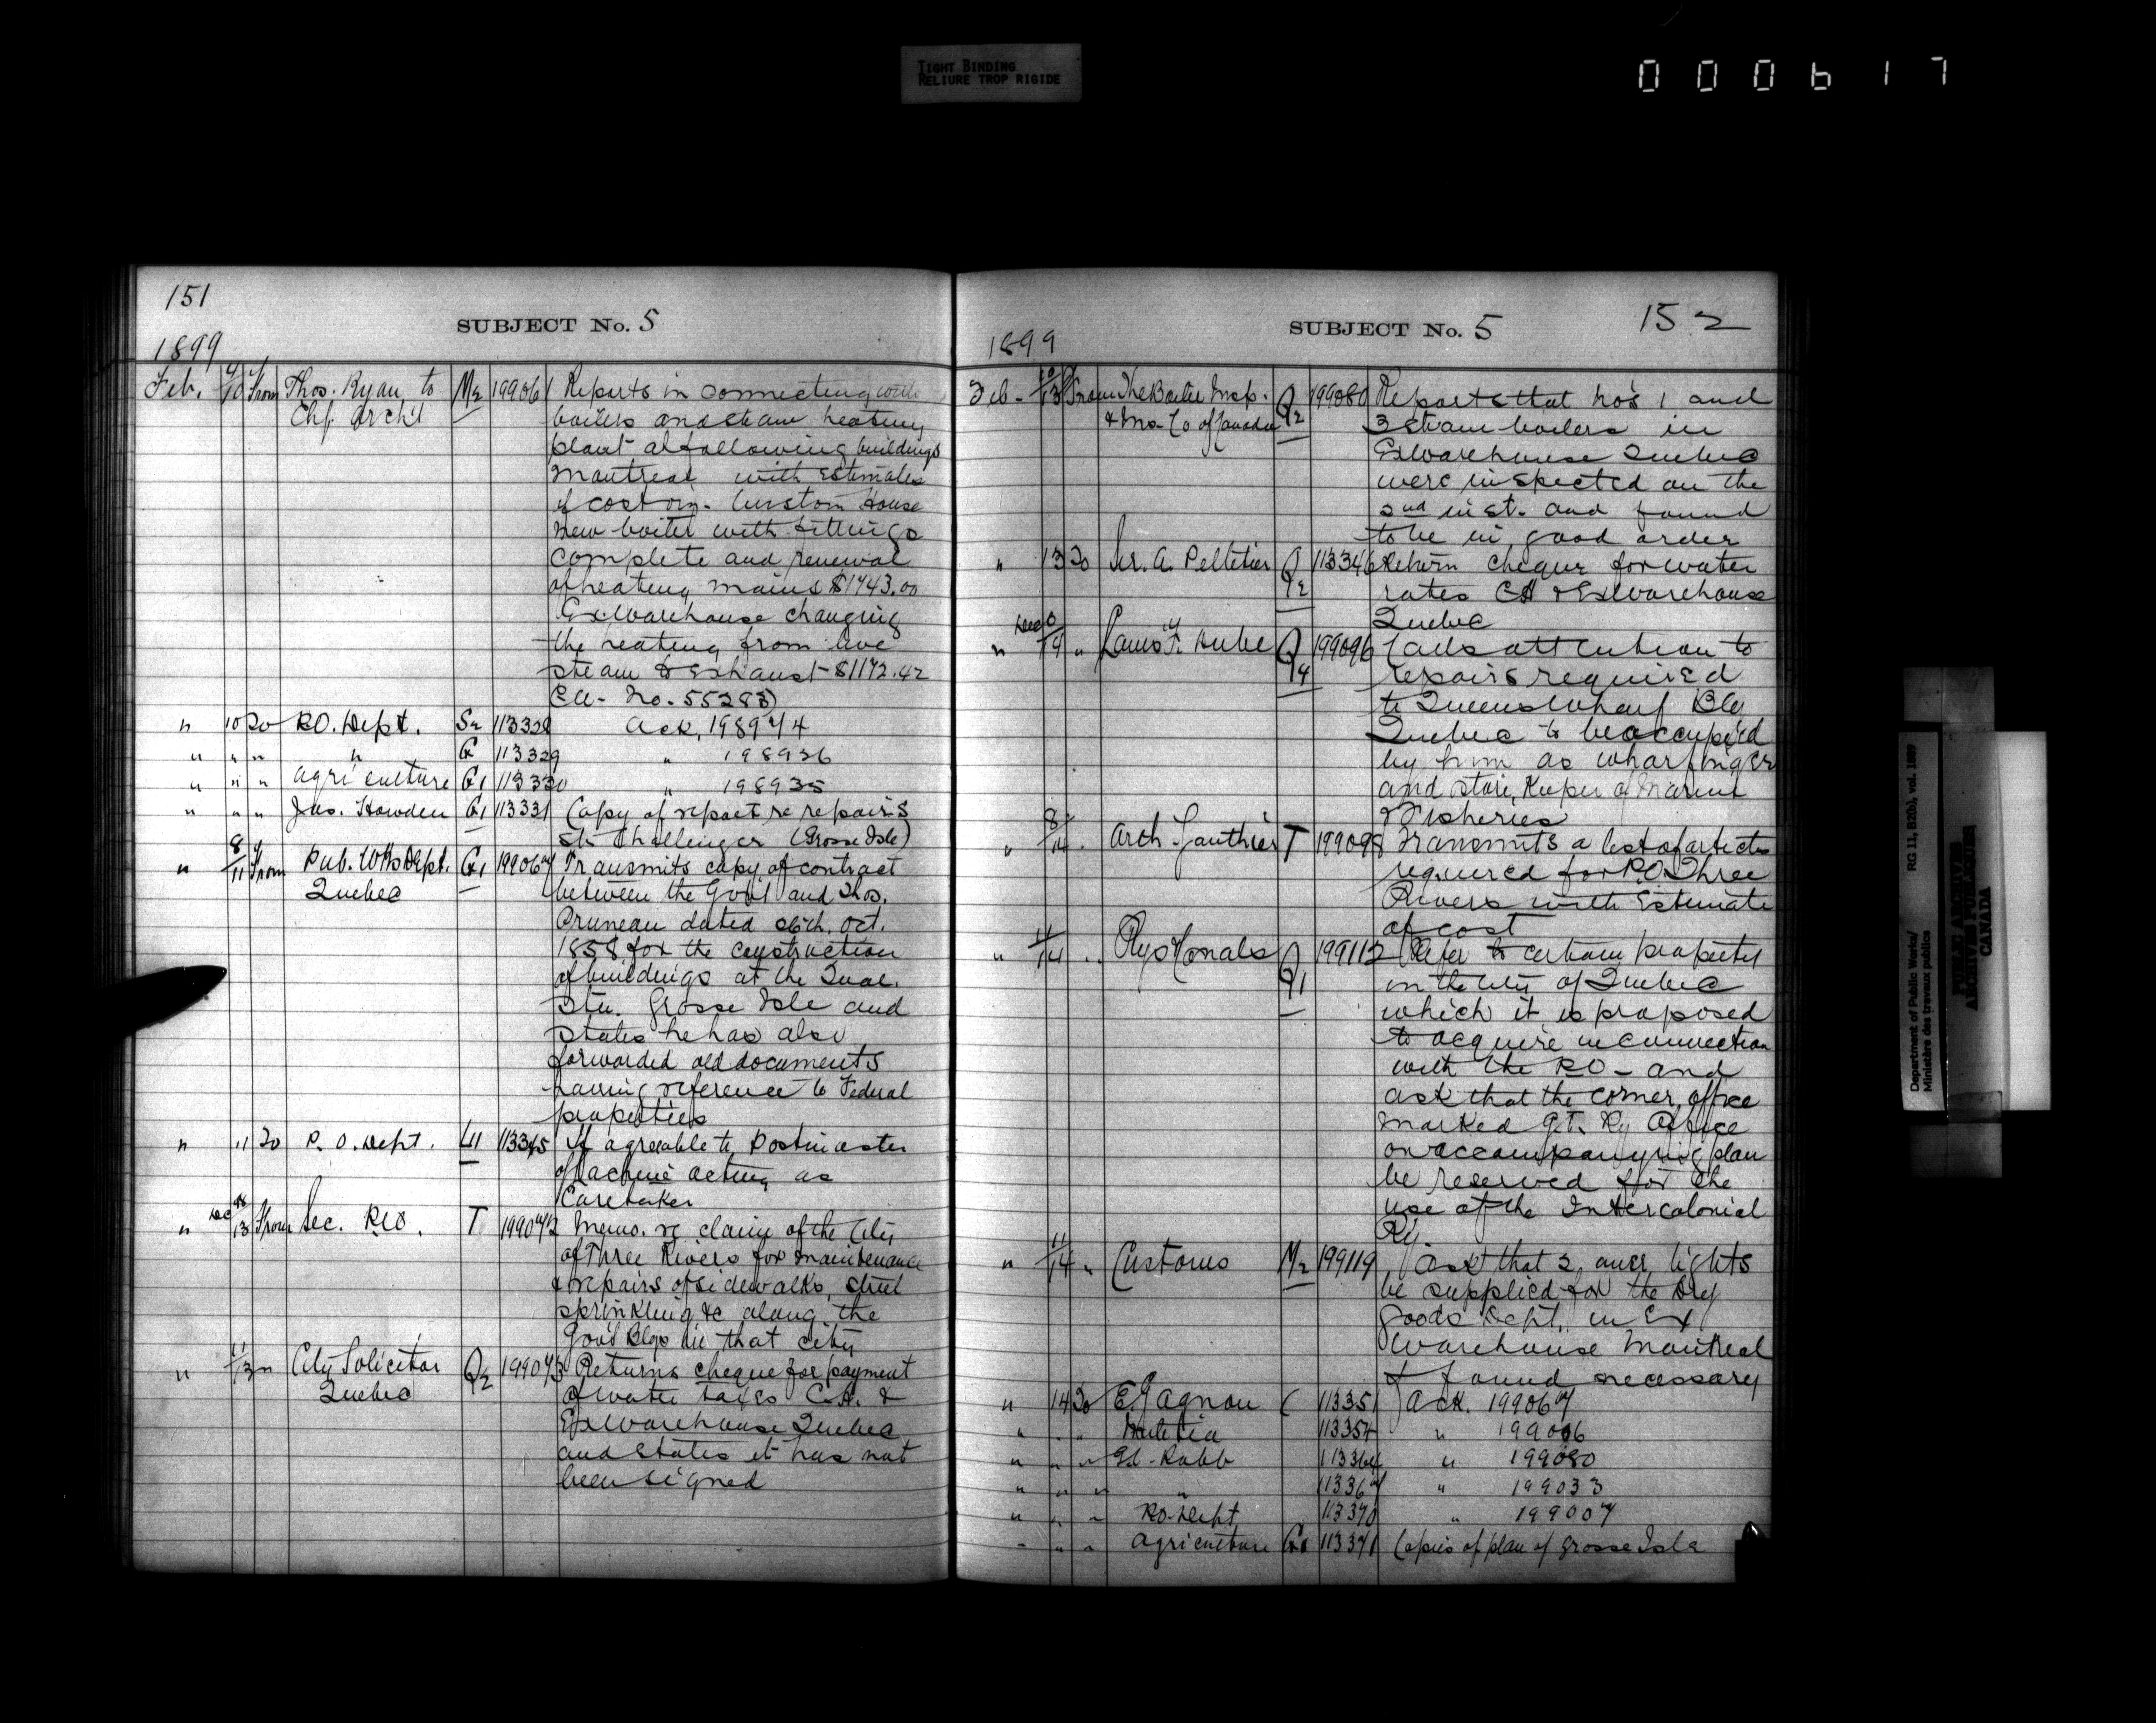 TIGHT BINDING
RELIURE TROP RIGIDE
000617
151
SUBJECT No. 5
1899
Feb. 9/10 From Thos. Ryan to M2 199061 Reports in connecting with
Chf. Archt boilers and steam heating
plant at following buildings
Montreal with Estimates
of cost viz. Custom House
New boiler with fittings
complete and renewal
of heating mains $1743.00
Ex Warehouse changing
the heating from live
steam to Exhaust $1172.42
Ea. No. 55283)
" 10 To P.O. Dept. S2 113328 Ack, 198974
" " " " G 113329 " 198926
" " " Agriculture G1 113330 " 198935
" " " Jas. Howden G1 113331 Copy of report re repairs
Str Challenger (Grosse Isle)
" 8/11 From Pub. Wks Dept. G1 199067 Transmits copy of contract
Quebec between the Govt and Thos.
Pruneau dated 26th. Oct.
1858 for the construction
of buildings at the Quar.
Stn. Grosse Isle and
states he has also
forwarded old documents
having reference to Federal
properties
" 11 To P. O. Dept. L11 113345 If agreeable to Postmaster
of Lachine acting as
Caretaker
" Dec /13 From Sec. P.O. T 199072 Memo. re claim of the City
of Three Rivers for maintenance
& repairs of sidewalks, street
sprinkling &c along the
Govt Blgs in that city
" 11/13 " City Solicitor Q2 199073 Returns cheque for payment
Quebec of water taxes C.H. &
Ex Warehouse Quebec
and states it has not
been signed
SUBJECT No. 5
152
1899
Feb - 10/13 From The Boiler Insp. Q2 199080 Reports that No's 1 and
& Ins. Co of Canada 3 steam boilers in
Ex Warehouse Quebec
were inspected on the
2nd inst. and found
to be in good order
" 13 To Sir. A. Pelletier Q2 113346 Return cheque for water
rates CH & Ex Warehouse
Quebec
" Dec /14 " Louis F. Dube Q4 199096 Calls attention to
repairs required
to Queens Wharf Blg
Quebec to be occupied
by him as wharfinger
and store, Keeper of Marine
& Fisheries
" 8/14 . Arch. Gauthier T 199098 Transmits a list of articles
required for P.O. Three
Rivers with Estimate
of cost
" 11/14 " Rys & Canals Q1 199112 Refer to certain property
in the City of Quebec
which it is proposed
to acquire in connection
with the P.O - and
ask that the corner office
marked G.T. Ry Office
on accompanying plan
be reserved for the
use of the Intercolonial
Ry
" 11/14 " Customs M2 199119 Ask that 2 lights
be supplied for the Dry
goods Dept. in Ex
Warehouse Montreal
found necessary
" 14 To E. Gagnon C 113351 Ack. 199067
" " " 113354 " 199006
" " " Gd. Robb 113364 " 199080
" " " " 113367 " 199033
" " " P.O. Dept 113370 " 199007
" " " Agriculture G1 113371 Copies of plan of Grosse Isle
Department of Public Works/ RG 11, B2(b), vol. 1809
Ministère des travaux publics
PUBLIC ARCHIVES
ARCHIVES PUBLIQUES
CANADA